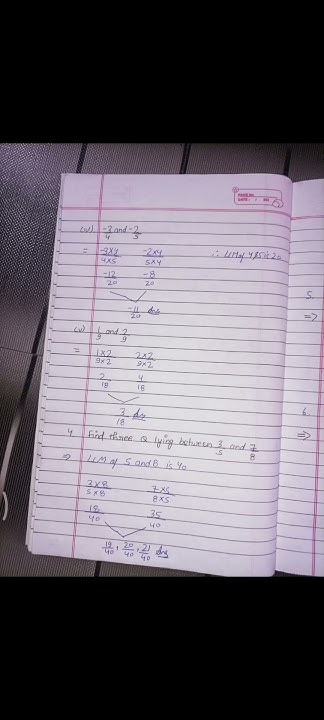 PAGE No.
DATE: / /
(iv) -3/4 and -2/5
= -3×4/4×5 -2×4/5×4 ∴ LCM of 4,5 is 20
-12/20 -8/20
-11/20 Ans
(v) 1/9 and 2/9
= 1×2/9×2 2×2/9×2
2/18 4/18
3/18 Ans
4 Find three Q lying between 3/5 and 7/8
⇒ LCM of 5 and 8 is 40
3×8/5×8 7×5/8×5
18/40 35/40
19/40, 20/40, 21/40 Ans
5.
⇒
6.
⇒